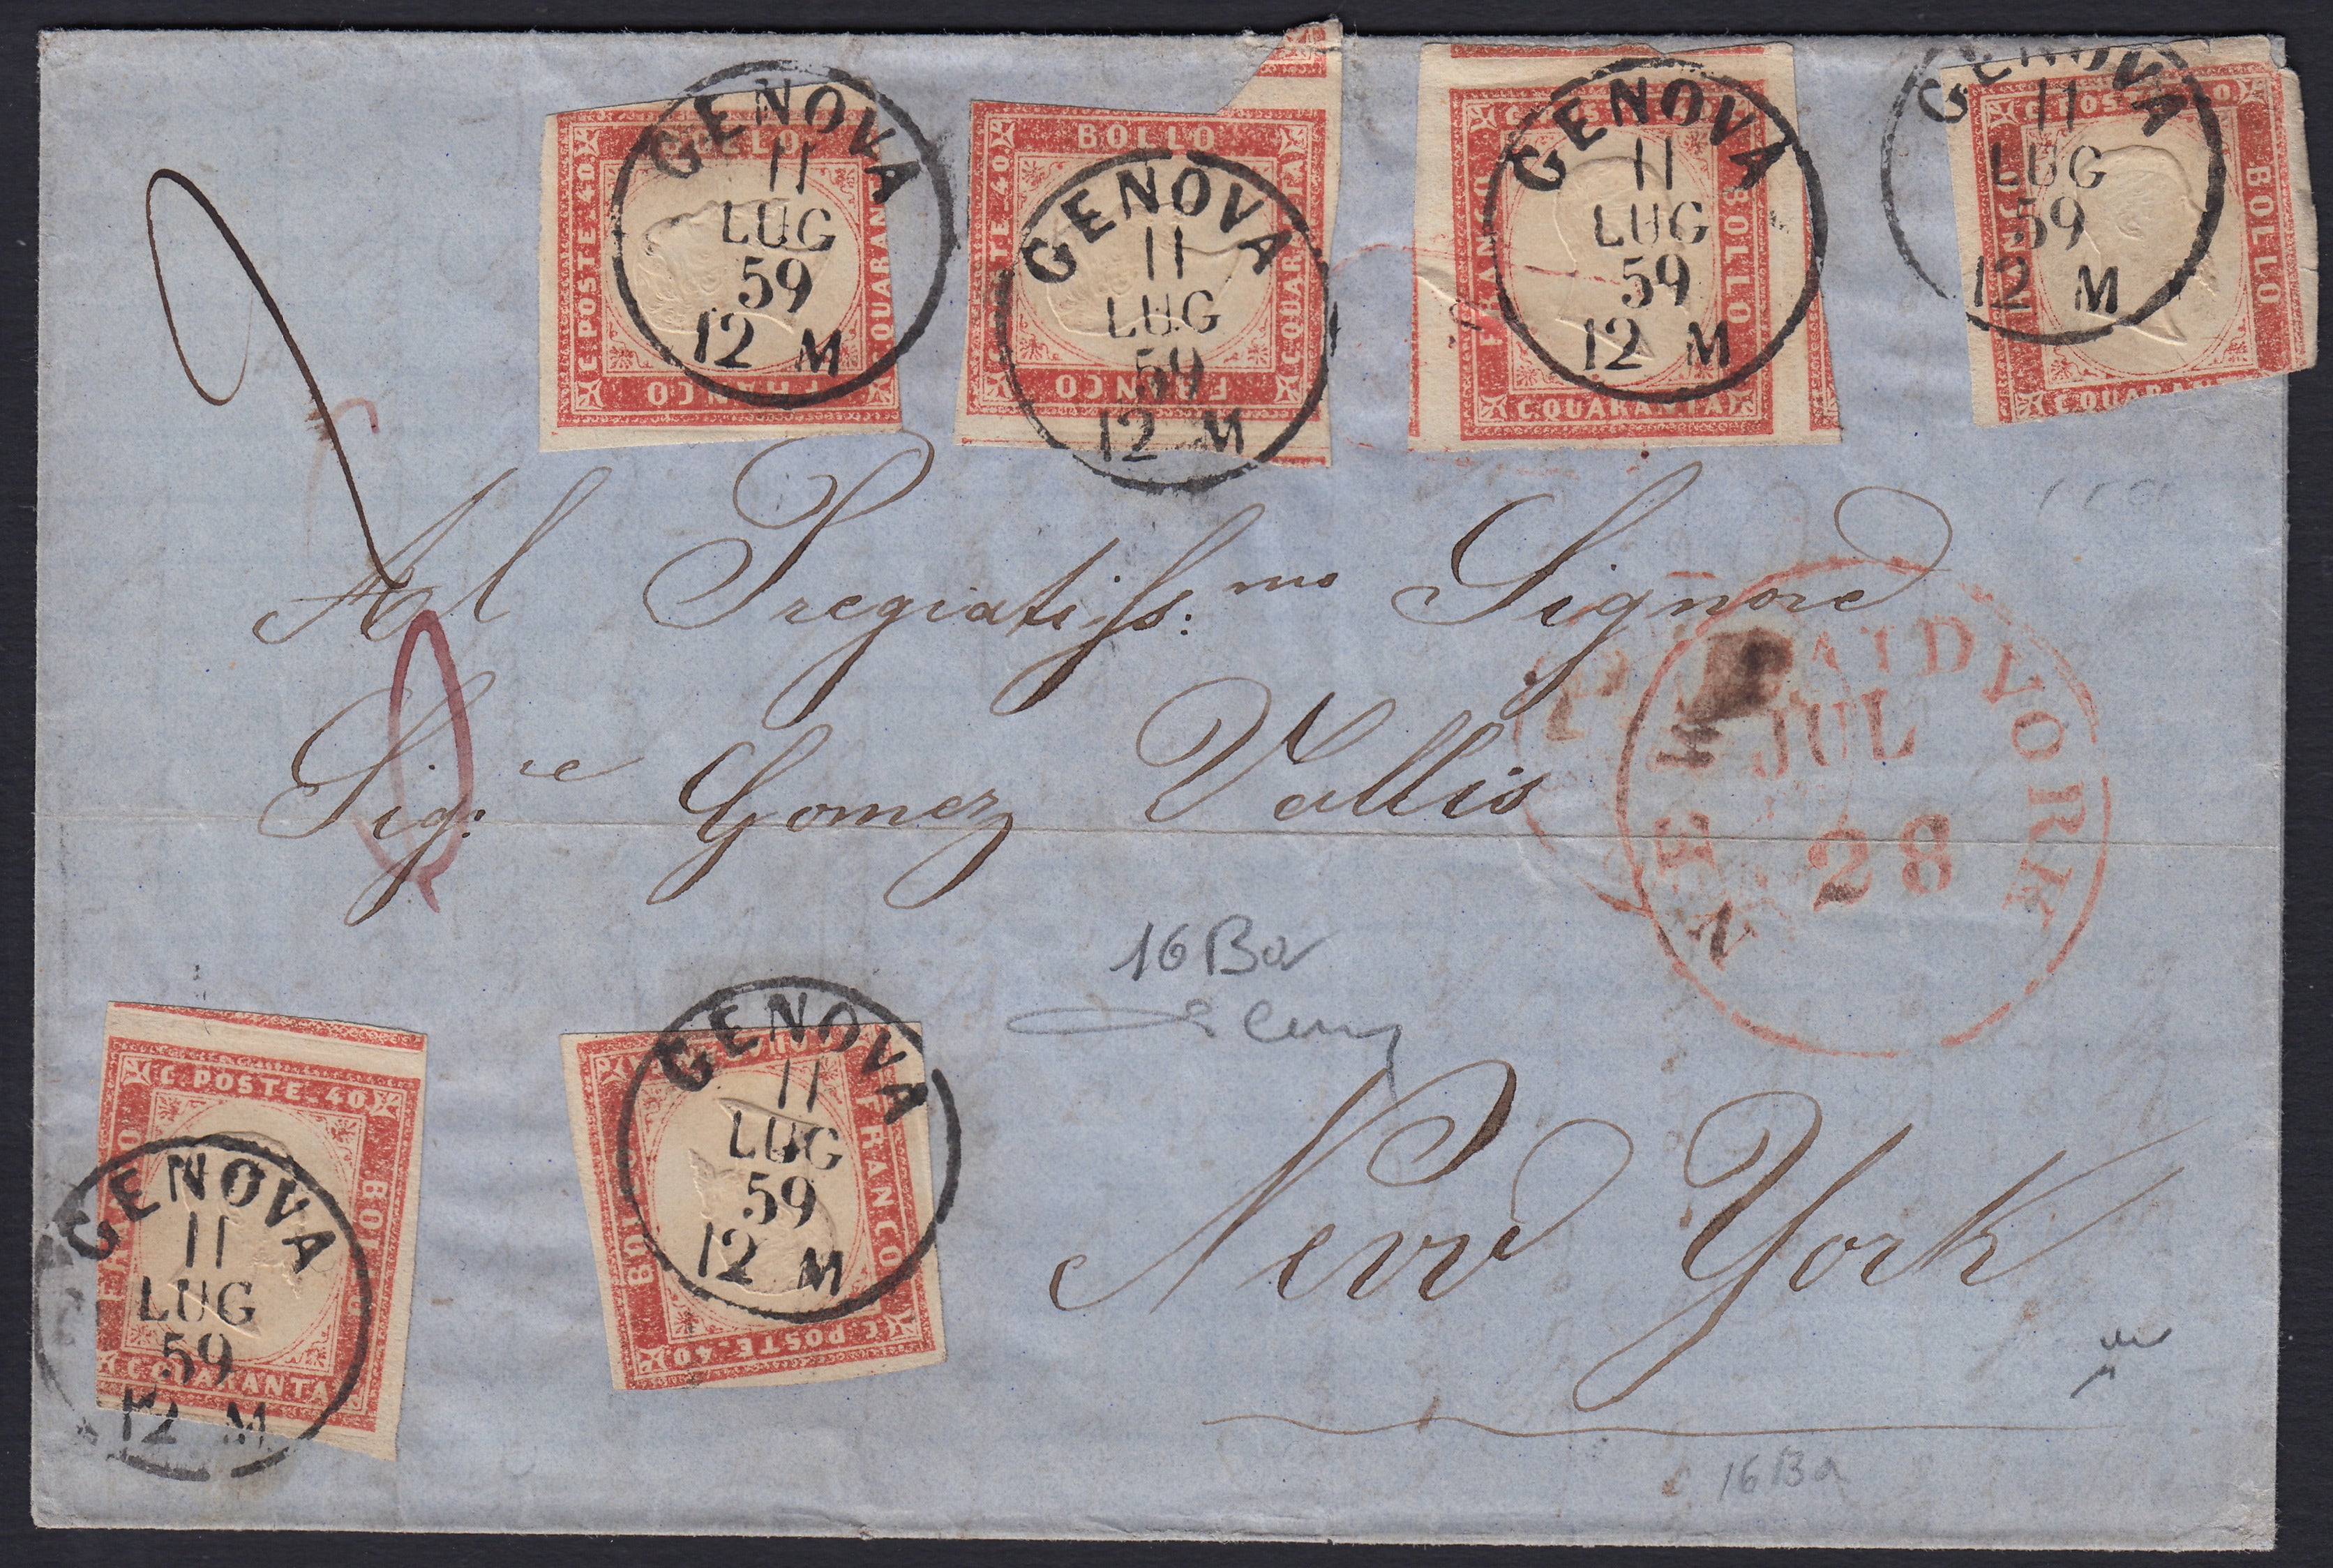 C. POSTE. 40 QUARAN FRANCO
GENOVA 11 LUG 59 12 M
BOLLO C. QUARANTA FRANCO
GENOVA 11 LUG 59 12 M
FRANCO BOLLO C. QUARANTA
GENOVA 11 LUG 59 12 M
C. POS BOLLO C. QUARANT
GENOVA 11 LUG 59 12 M
Al Pregiatiss:mo Signore
Sig:re Gomez Vallis
NEW YORK
PAID
JUL
28
16Ba
C. POSTE. 40 BOLLO C. QUARANTA
GENOVA 11 LUG 59 12 M
FRANCO C. POSTE. 40
GENOVA 11 LUG 59 12 M
New York
16Ba